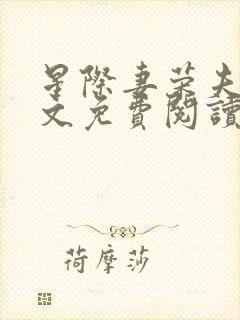 星際妻榮夫
文免費閱讀
荷摩莎